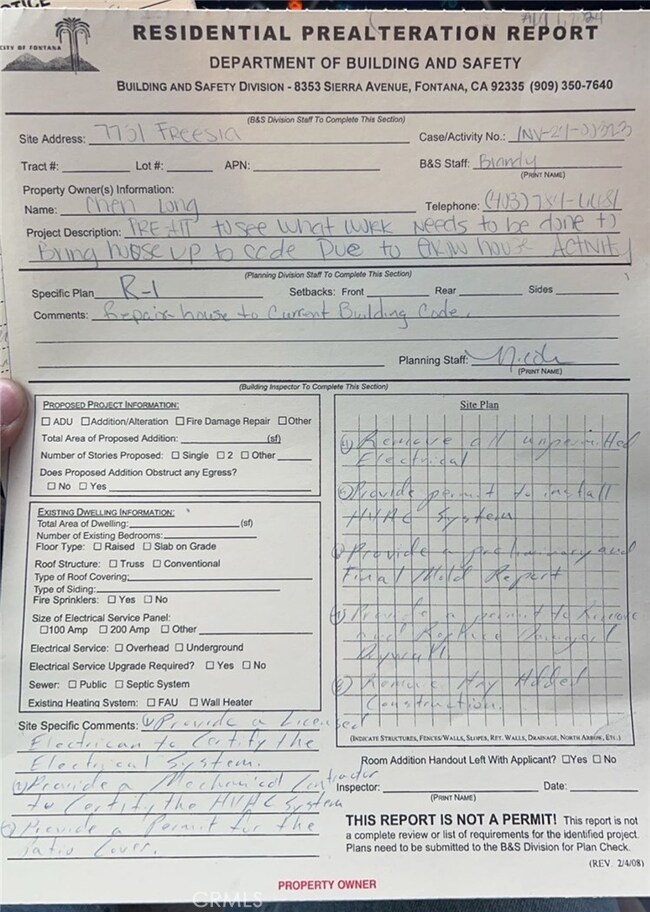 CITY OF FONTANA
RESIDENTIAL PREALTERATION REPORT
DEPARTMENT OF BUILDING AND SAFETY
BUILDING AND SAFETY DIVISION - 8353 SIERRA AVENUE, FONTANA, CA 92335 (909) 350-7640
(B&S Division Staff To Complete This Section)
Site Address: 7751 Freesia Case/Activity No.:
Tract #: Lot #: APN: B&S Staff: Brandy
(PRINT NAME)
Property Owner(s) Information:
Name: Chen Long Telephone:
Project Description: PRE-ALT to see what work needs to be done to
Bring house up to code Due to Grow house Activity
(Planning Division Staff To Complete This Section)
Specific Plan R-1 Setbacks: Front Rear Sides
Comments: Repair house to Current Building Code.
Planning Staff: Nicole
(PRINT NAME)
(Building Inspector To Complete This Section)
PROPOSED PROJECT INFORMATION:
☐ ADU ☐ Addition/Alteration ☐ Fire Damage Repair ☐ Other
Total Area of Proposed Addition: (sf)
Number of Stories Proposed: ☐ Single ☐ 2 ☐ Other
Does Proposed Addition Obstruct any Egress?
☐ No ☐ Yes
EXISTING DWELLING INFORMATION:
Total Area of Dwelling: (sf)
Number of Existing Bedrooms:
Floor Type: ☐ Raised ☐ Slab on Grade
Roof Structure: ☐ Truss ☐ Conventional
Type of Roof Covering:
Type of Siding:
Fire Sprinklers: ☐ Yes ☐ No
Size of Electrical Service Panel:
☐ 100 Amp ☐ 200 Amp ☐ Other
Electrical Service: ☐ Overhead ☐ Underground
Electrical Service Upgrade Required? ☐ Yes ☐ No
Sewer: ☐ Public ☐ Septic System
Existing Heating System: ☐ FAU ☐ Wall Heater
Site Specific Comments: Provide a Licensed
Electrican to Certify the
Electrical System.
Provide a Mechanical Contractor
to Certify the HVAC System
Provide a Permit for the
Patio Cover.
Site Plan
Remove all unpermitted
Electrical
Provide permit to install
HVAC System
Provide a preliminary and
Final Mold Report
Provide a permit to Remove
and Replace Damaged
Drywall.
Remove Any Added
Construction.
(INDICATE STRUCTURES, FENCES/WALLS, SLOPES, RET. WALLS, DRAINAGE, NORTH ARROW, ETC.)
Room Addition Handout Left With Applicant? ☐ Yes ☐ No
Inspector: Date:
(PRINT NAME)
THIS REPORT IS NOT A PERMIT! This report is not
a complete review or list of requirements for the identified project.
Plans need to be submitted to the B&S Division for Plan Check.
(REV. 2/4/08)
PROPERTY OWNER
CRMLS